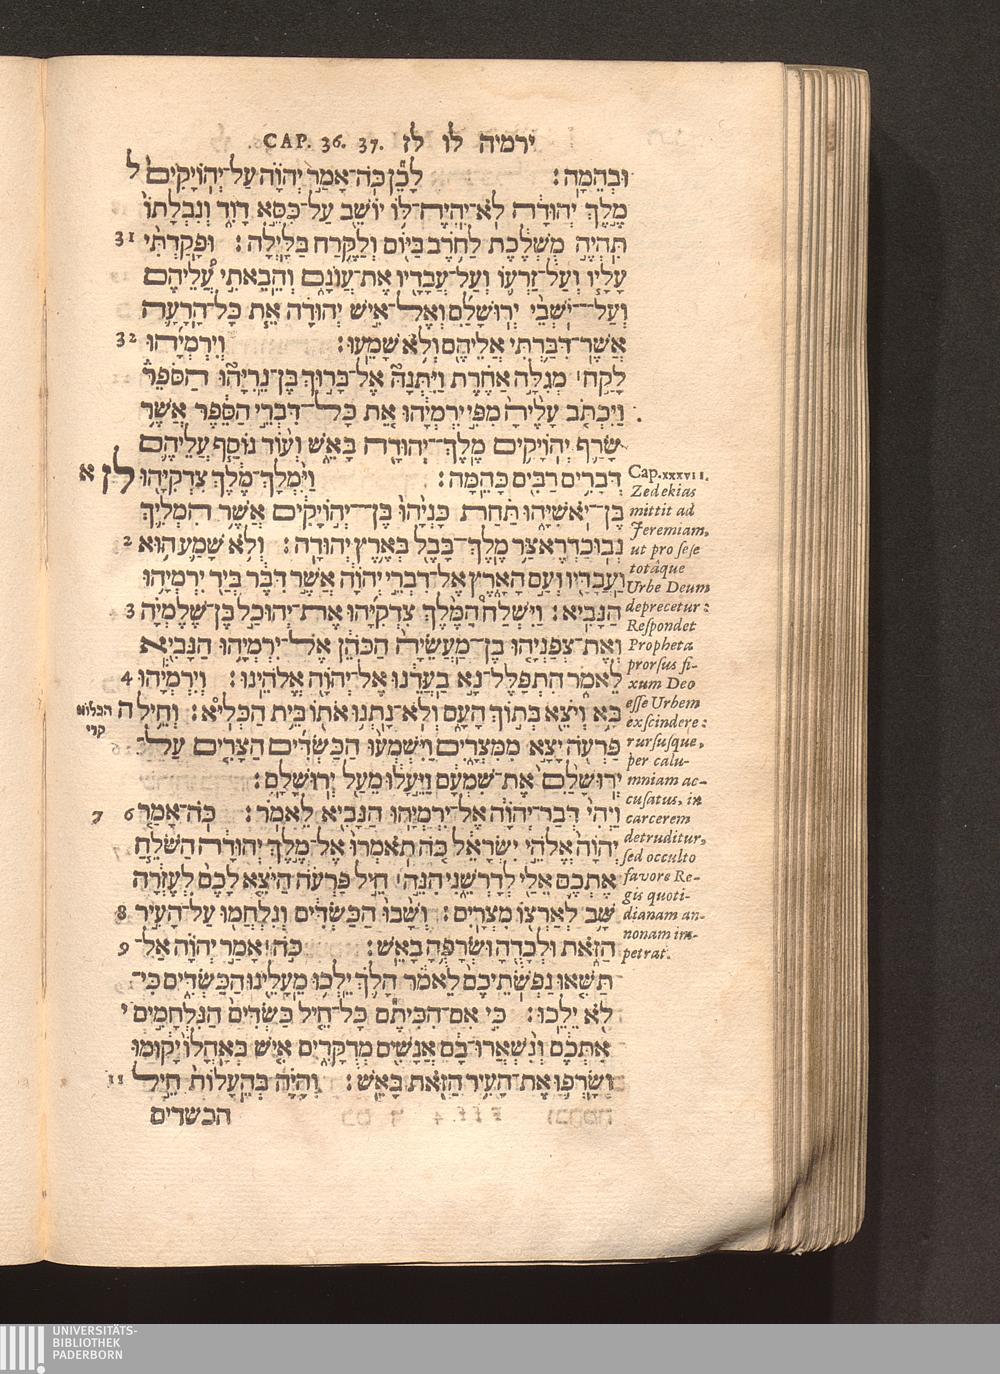 ירמיה לו לז CAP. 36. 37.
וּבְהֵמָה׃ לָכֵן כֹּה־אָמַר יְהוָֹה עַל־יְהוֹיָקִים ל
מֶלֶךְ יְהוּדָה לֹא־יִהְיֶה־לּוֹ יוֹשֵׁב עַל־כִּסֵּא דָוִד וְנִבְלָתוֹ
תִּהְיֶה מֻשְׁלֶכֶת לַחֹרֶב בַּיּוֹם וְלַקֶּרַח בַּלָּיְלָה׃ וּפָקַדְתִּי 31
עָלָיו וְעַל־זַרְעוֹ וְעַל־עֲבָדָיו אֶת־עֲוֹנָם וְהֵבֵאתִי עֲלֵיהֶם
וְעַל־יֹשְׁבֵי יְרוּשָׁלִַם וְאֶל־אִישׁ יְהוּדָה אֵת כָּל־הָרָעָה
אֲשֶׁר־דִּבַּרְתִּי אֲלֵיהֶם וְלֹא שָׁמֵעוּ׃ וְיִרְמְיָהוּ 32
לָקַח ׀ מְגִלָּה אַחֶרֶת וַיִּתְּנָהּ אֶל־בָּרוּךְ בֶּן־נֵרִיָּהוּ הַסֹּפֵר
וַיִּכְתֹּב עָלֶיהָ מִפִּי יִרְמְיָהוּ אֵת כָּל־דִּבְרֵי הַסֵּפֶר אֲשֶׁר
שָׂרַף יְהוֹיָקִים מֶלֶךְ־יְהוּדָה בָּאֵשׁ וְעוֹד נוֹסַף עֲלֵיהֶם
דְּבָרִים רַבִּים כָּהֵמָּה׃ וַיִּמְלָךְ־מֶלֶךְ צִדְקִיָּהוּ לז א
בֶּן־יֹאשִׁיָּהוּ תַּחַת כָּנְיָהוּ בֶּן־יְהוֹיָקִים אֲשֶׁר הִמְלִיךְ
נְבוּכַדְרֶאצַּר מֶלֶךְ־בָּבֶל בְּאֶרֶץ יְהוּדָה׃ וְלֹא שָׁמַע הוּא 2
וַעֲבָדָיו וְעַם הָאָרֶץ אֶל־דִּבְרֵי יְהוָֹה אֲשֶׁר דִּבֶּר בְּיַד יִרְמְיָהוּ
הַנָּבִיא׃ וַיִּשְׁלַח הַמֶּלֶךְ צִדְקִיָּהוּ אֶת־יְהוּכַל בֶּן־שֶׁלֶמְיָה 3
וְאֶת־צְפַנְיָהוּ בֶן־מַעֲשֵׂיָה הַכֹּהֵן אֶל־יִרְמְיָהוּ הַנָּבִיא
לֵאמֹר הִתְפַּלֶּל־נָא בַעֲדֵנוּ אֶל־יְהוָֹה אֱלֹהֵינוּ׃ וְיִרְמְיָהוּ 4
בָּא וְיֹצֵא בְּתוֹךְ הָעָם וְלֹא־נָתְנוּ אֹתוֹ בֵּית הַכְּלִיא׃ וְחֵיל ה
הכלוא
קרי
פַּרְעֹה יָצָא מִמִּצְרָיִם וַיִּשְׁמְעוּ הַכַּשְׂדִּים הַצָּרִים עַל־
יְרוּשָׁלִַם אֶת־שִׁמְעָם וַיֵּעָלוּ מֵעַל יְרוּשָׁלִָם׃
וַיְהִי דְּבַר־יְהוָֹה אֶל־יִרְמְיָהוּ הַנָּבִיא לֵאמֹר׃ כֹּה־אָמַר 6 7
יְהוָֹה אֱלֹהֵי יִשְׂרָאֵל כֹּה תֹאמְרוּ אֶל־מֶלֶךְ יְהוּדָה הַשֹּׁלֵחַ
אֶתְכֶם אֵלַי לְדָרְשֵׁנִי הִנֵּה ׀ חֵיל פַּרְעֹה הַיֹּצֵא לָכֶם לְעֶזְרָה
שָׁב לְאַרְצוֹ מִצְרָיִם׃ וְשָׁבוּ הַכַּשְׂדִּים וְנִלְחֲמוּ עַל־הָעִיר 8
הַזֹּאת וּלְכָדֻהָ וּשְׂרָפֻהָ בָאֵשׁ׃ כֹּה ׀ אָמַר יְהוָֹה אַל־ 9
תַּשִּׁאוּ נַפְשֹׁתֵיכֶם לֵאמֹר הָלֹךְ יֵלְכוּ מֵעָלֵינוּ הַכַּשְׂדִּים כִּי־
לֹא יֵלֵכוּ׃ כִּי אִם־הִכִּיתֶם כָּל־חֵיל כַּשְׂדִּים הַנִּלְחָמִים י
אִתְּכֶם וְנִשְׁאֲרוּ־בָם אֲנָשִׁים מְדֻקָּרִים אִישׁ בְּאָהֳלוֹ יָקוּמוּ
וְשָׂרְפוּ אֶת־הָעִיר הַזֹּאת בָּאֵשׁ׃ וְהָיָה בְּהֵעָלוֹת חֵיל 11
הכשדים
Cap.xxxvii.
Zedekias
mittit ad
Jeremiam,
ut pro sese
totáque
Urbe Deum
deprecetur:
Respondet
Propheta
prorsus fi-
xum Deo
esse Urbem
exscindere:
rursusque,
per calu-
mniam ac-
cusatus, in
carcerem
detruditur,
sed occulto
favore Re-
gis quoti-
dianam an-
nonam im-
petrat.
UNIVERSITÄTS-
BIBLIOTHEK
PADERBORN